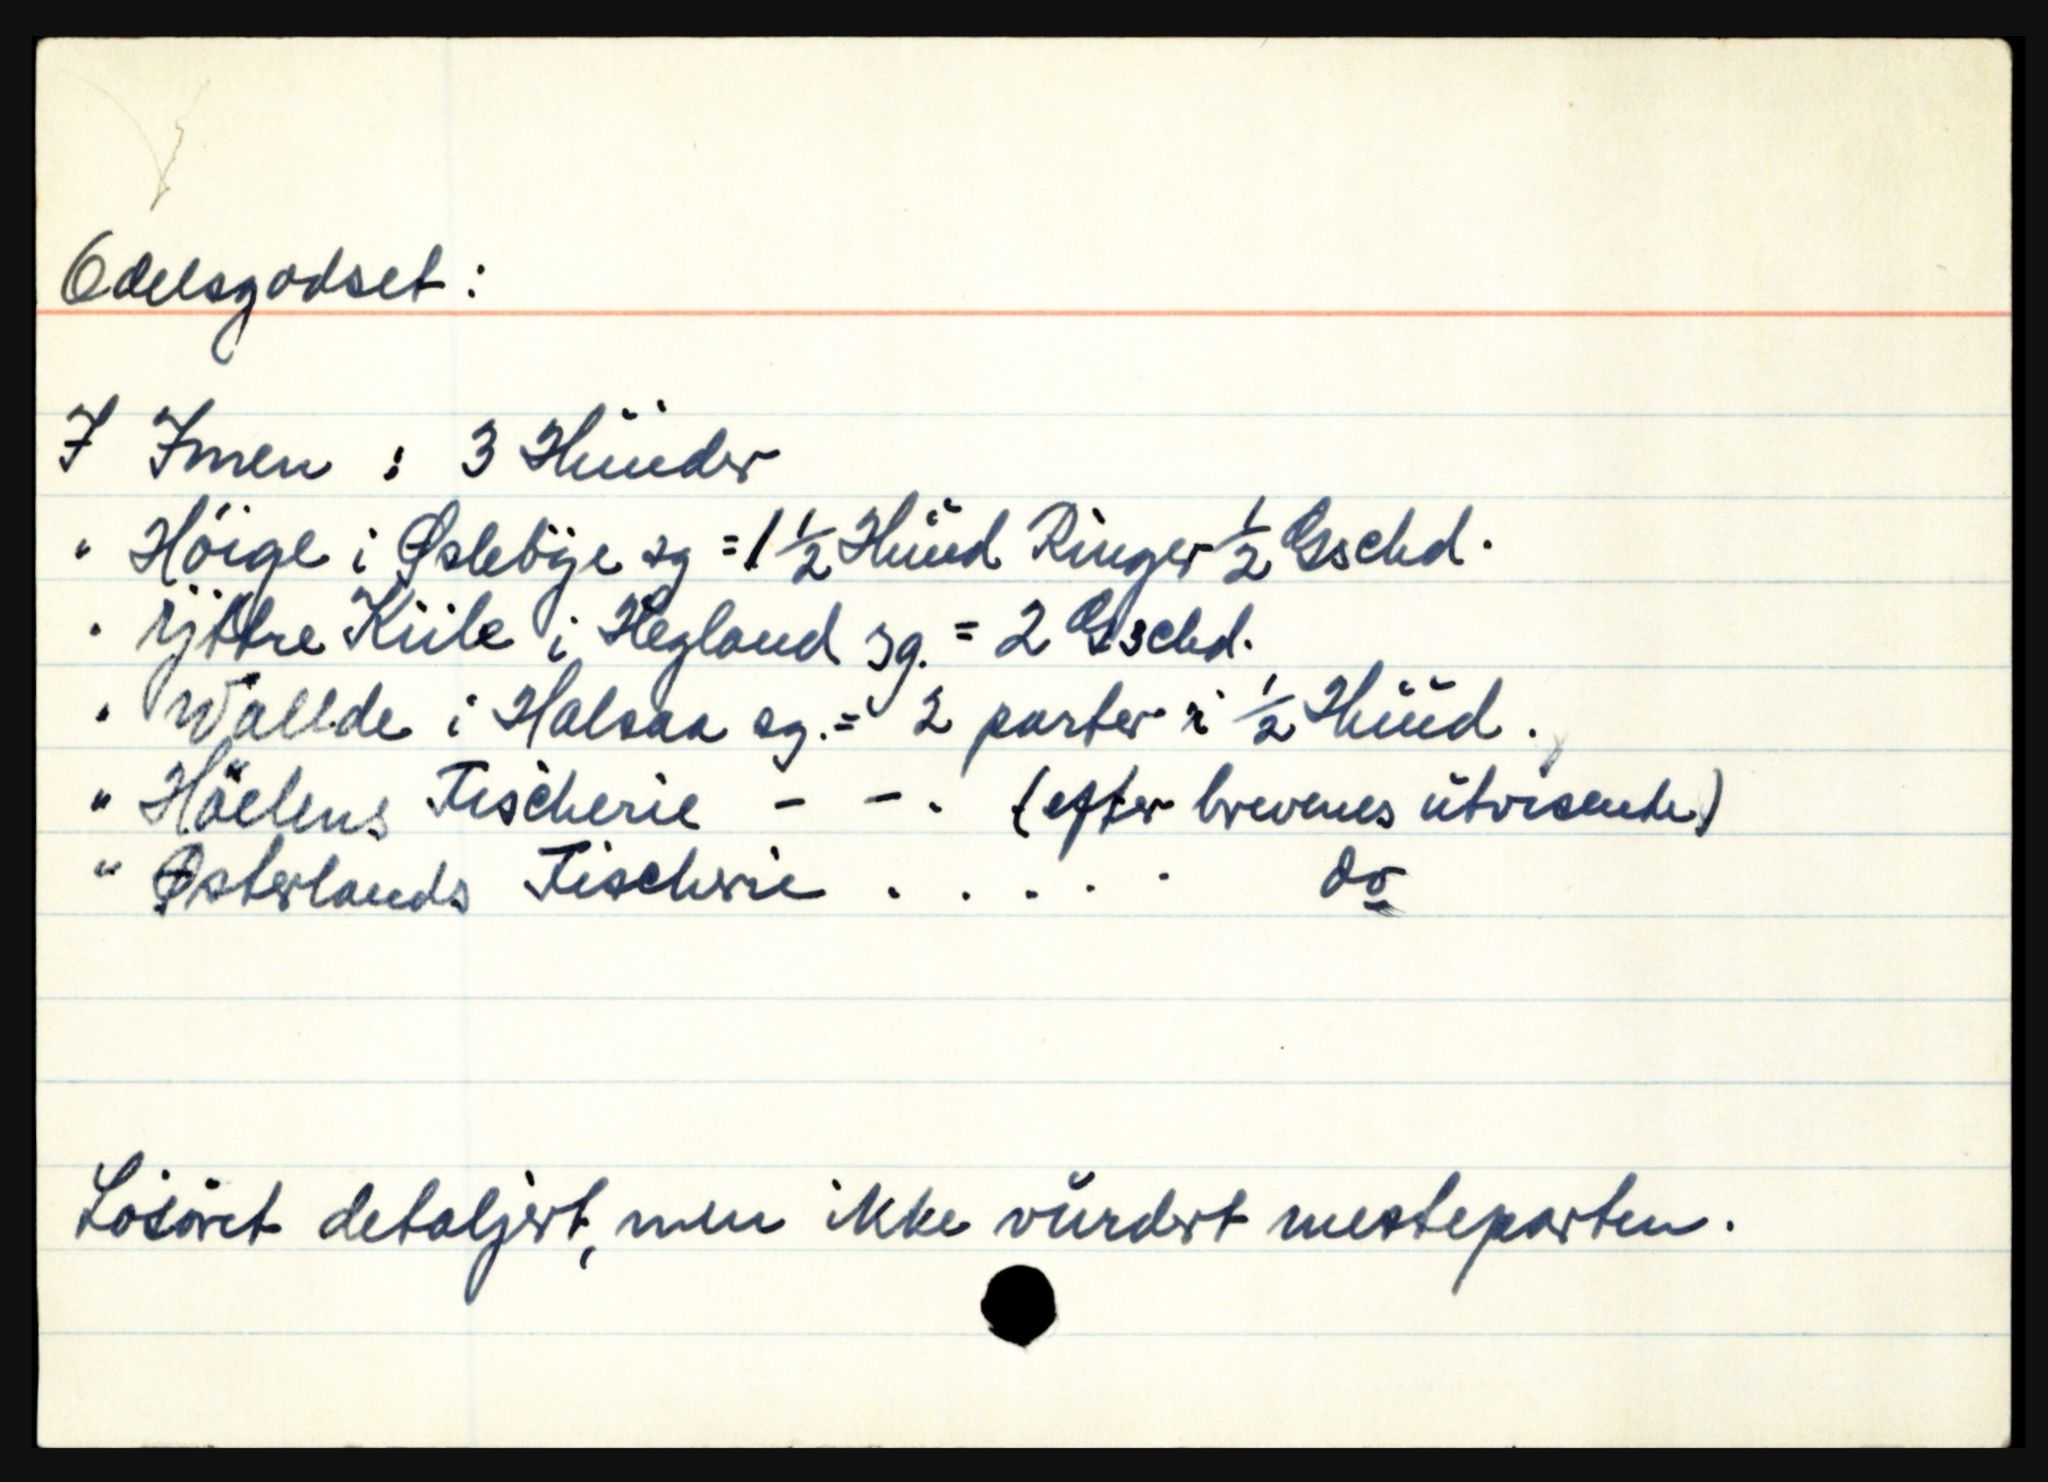 Odelsgodset:
I Imen : 3 Hüüder
" Höige i Øslebÿe sg = 1 1/2 Hüüd Ringer 1/2 Gschd.
" Ÿttre Kiile i Hegland sg. = 2 Gschd.
" Wallde i Halsaa sg. = 2 parter i 1/2 Hüüd.
" Höelens Fischerie - - . (efter brevenes ŭtvisende)
" Østerlands Fischerie . . . . . do
Lösöret detaljert, men ikke vŭrdert mesteparten.